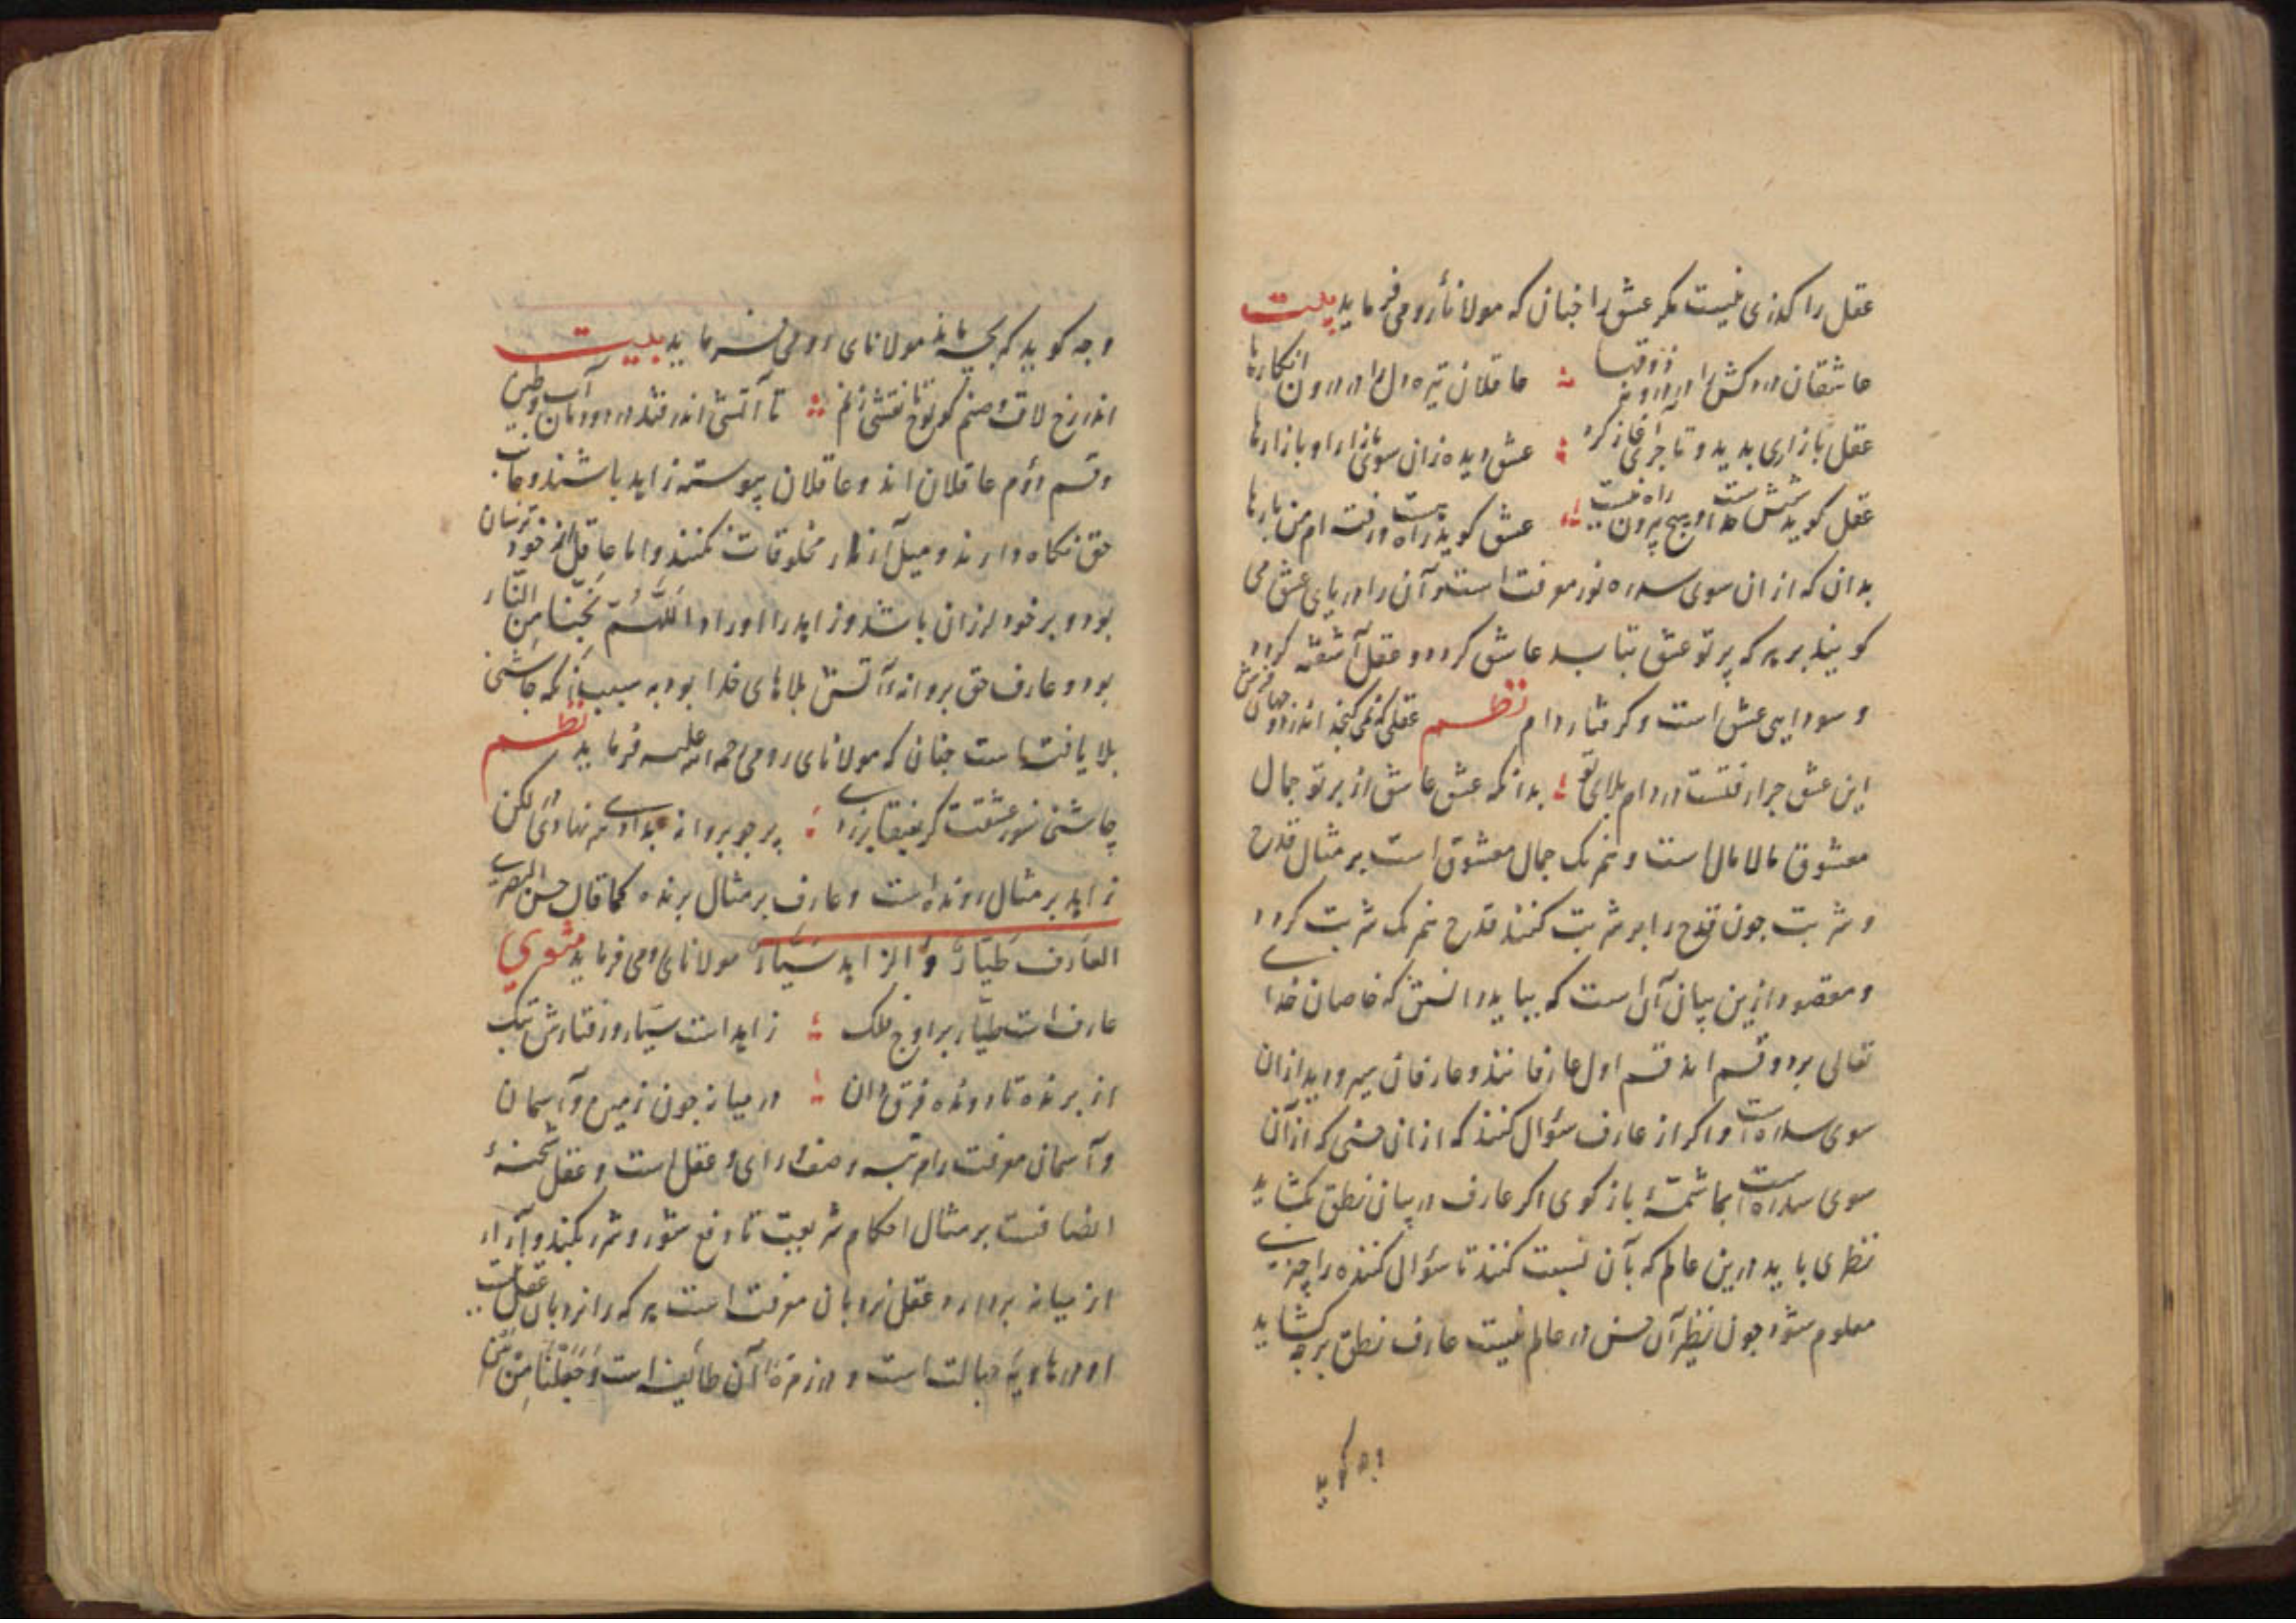 عقل را کذری نیست مکر عشق را جنان که مولاناء رومی فرماید بیت
عاشقان دردکش را در درونه ذوقها ؞ عاقلان تیره دل را در درون انکارها
عقل بازاری بدید و تاجری آغاز کرد ؞ عشق دیده زان سوی بازار او بازارها
عقل کوید شش جهت حدست و هیچ بیرون راه نیست ؞ عشق کوید راه هست و رفته ام من بارها
بدان که از ان سوی سدره نور معرفت است و آن را دریای عشق می
کویند بر هر که پرتو عشق بتابد عاشق کردد و عقل آشفته کردد
و سودایی عشق است و کرفتار دام نظم عقلی که نمی کنجد اندر دو جهان
این عشق جرا رفتست در دام بلای تو ؞ بدانکه عشق عاشق از پرتو جمال
معشوق مالامال است و نمک جمال معشوق است بر مثال قدح
و شربت جون قدح را بر شربت کنند قدح نمک شربت کردد
و مقصود ازین بیان آن است که بباید دانستن که خاصان خدای
تعالی بر دو قسم اند قسم اول عارفانند و عارفان
سوی سدره است و اکر از عارف سؤال کنند که از ان که از آن
سوی سدره است بما شمهٔ باز کوی اکر عارف در بیان نطق کشاید
نظری باید درین عالم که بآن نسبت کنند تا سؤال کننده را چیزی
معلوم شود جون نظیر آن در عالم نیست عارف نطق بر چه کشاید
وجه کوید
وجه کوید که بجه ماند مولانای رومی فرماید بیت
اندر رخ لاف و صنم کو نوح تا نقشی زنم ؞ تا آتشی اندر فتد در دودمان آب و طین
و قسم دوم عاقلان اند و عاقلان پیوسته زاهد باشند و جانب
حق نکاه دارند و میل آزار مخلوقات نکنند و اما عاقل از خود ترسان
بود و بر خود لرزان باشد و زاهد را اوراد اَللّٰهُمَّ نَجِّنَا مِنَ النَّار
بود و عارف حق پروانهٔ آتش بلاهای خدا بود به سبب آنکه چاشنی
بلا یافته است جنان که مولانای رومی رحمه الله علیه فرماید نظم
چاشنی سوز عشقت کر ؞ پر چو پروانه بدادی سر نهادی لکن
زاهد بر مثال رونده است و عارف بر مثال پرنده کما قال حسن البصری
العارف طَیّارٌ وَ الزاهد سَیّارٌ مولانای رومی فرماید مثنوی
عارف است طیّار بر اوج فلک ؞ زاهد است سیّار و رفتارش تبک
از پرنده تا رونده فرق دان ؞ در میانه جون زمین و آسمان
و آسمان معرفت را مرتبه و صف ورای عقل است و عقل شحنهٔ
انصافست بر مثال احکام شریعت تا دفع شور و شر بکند و آزار
از میانه بردارد و عقل نردبان معرفت است هر که را نردبان عقل نیست
او در هاویهٔ جهالت است و در زمرهٔ آن طائفه است وَجَعَلْنَا مِنْ